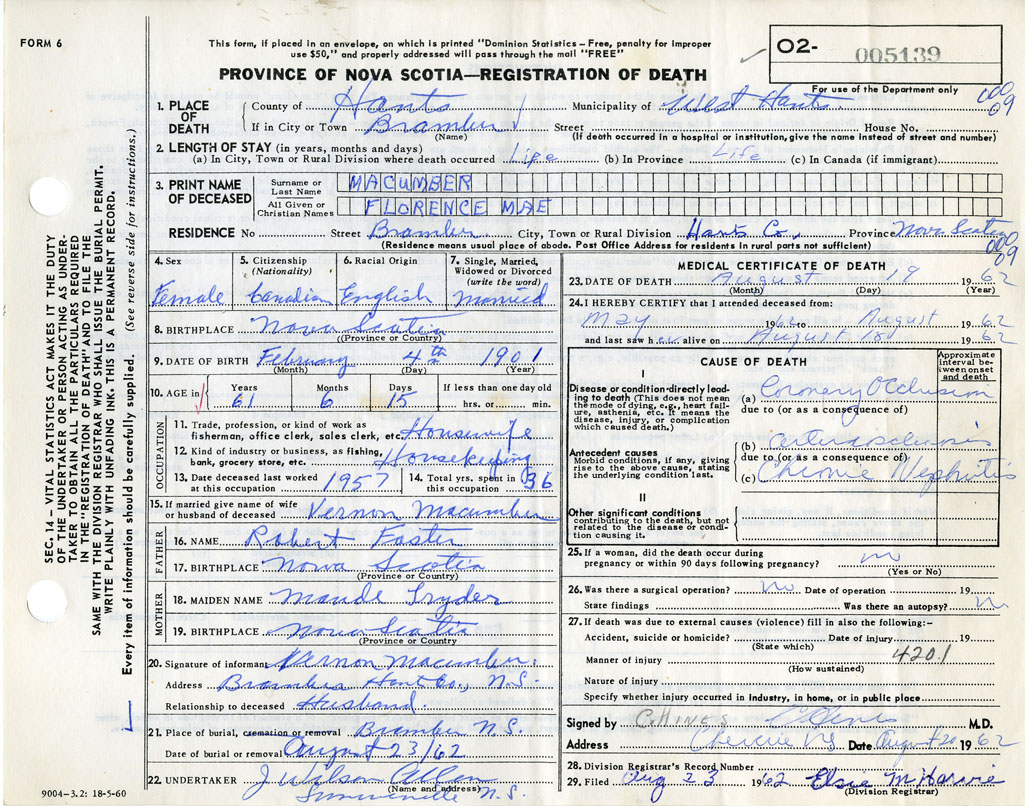 FORM 6
This form, if placed in an envelope, on which is printed "Dominion Statistics – Free, penalty for improper
use $50," and properly addressed will pass through the mail "FREE"
PROVINCE OF NOVA SCOTIA—REGISTRATION OF DEATH
O2- 005139
For use of the Department only
000
09
1. PLACE OF DEATH
County of Hants Municipality of West Hants
If in City or Town Bramber Street House No.
(Name) (If death occurred in a hospital or institution, give the name instead of street and number)
2. LENGTH OF STAY (in years, months and days)
(a) In City, Town or Rural Division where death occurred Life (b) In Province Life (c) In Canada (if immigrant)
3. PRINT NAME OF DECEASED
Surname or Last Name MACUMBER
All Given or Christian Names FLORENCE MAE
RESIDENCE No Street Bramber City, Town or Rural Division Hants Co, Province Nova Scotia
(Residence means usual place of abode. Post Office Address for residents in rural parts not sufficient)
000
09
4. Sex
Female
5. Citizenship
(Nationality)
Canadian
6. Racial Origin
English
7. Single, Married,
Widowed or Divorced
(write the word)
Married
8. BIRTHPLACE Nova Scotia
(Province or Country)
9. DATE OF BIRTH February 4th 1901
(Month) (Day) (Year)
10. AGE in
Years Months Days If less than one day old
61 6 15 hrs. or min.
OCCUPATION
11. Trade, profession, or kind of work as
fisherman, office clerk, sales clerk, etc. Housewife
12. Kind of industry or business, as fishing,
bank, grocery store, etc. Housekeeping
13. Date deceased last worked
at this occupation 1957
14. Total yrs. spent in
this occupation 36
15. If married give name of wife
or husband of deceased Vernon Macumber
FATHER
16. NAME Robert Foster
17. BIRTHPLACE Nova Scotia
(Province or Country)
MOTHER
18. MAIDEN NAME Maude
19. BIRTHPLACE Nova Scotia
(Province or Country
20. Signature of informant Vernon Macumber.
Address Bramber Hants Co., N.S.
Relationship to deceased Husband.
21. Place of burial, cremation or removal Bramber N.S.
Date of burial or removal August 23/62
22. UNDERTAKER J Wilson Allen
(Name and address)
Summerville N.S.
9004-3.2: 18-5-60
SEC. 14 – VITAL STATISTICS ACT MAKES IT THE DUTY
OF THE UNDERTAKER OR PERSON ACTING AS UNDER-
TAKER TO OBTAIN ALL THE PARTICULARS REQUIRED
IN THE "REGISTRATION OF DEATH" AND TO FILE THE
SAME WITH THE DIVISION REGISTRAR WHO SHALL ISSUE THE BURIAL PERMIT.
WRITE PLAINLY WITH UNFADING INK. THIS IS A PERMANENT RECORD.
Every item of information should be carefully supplied. (See reverse side for instructions.)
MEDICAL CERTIFICATE OF DEATH
23. DATE OF DEATH August 19 1962
(Month) (Day) (Year)
24. I HEREBY CERTIFY that I attended deceased from:
May 1962 to August 1962
and last saw her alive on August 18 1962
CAUSE OF DEATH
Approximate
interval be-
tween onset
and death
I
Disease or condition directly lead-
ing to death (This does not mean
the mode of dying, e.g., heart fail-
ure, asthenia, etc. It means the
disease, injury, or complication
which caused death.)
(a) Coronary Occlusion
due to (or as a consequence of)
Antecedent causes
Morbid conditions, if any, giving
rise to the above cause, stating
the underlying condition last.
(b) arteriosclerosis
due to (or as a consequence of)
(c) Chronic Nephritis
II
Other significant conditions
contributing to the death, but not
related to the disease or condi-
tion causing it.
25. If a woman, did the death occur during
pregnancy or within 90 days following pregnancy? no
(Yes or No)
26. Was there a surgical operation? no Date of operation 19
State findings Was there an autopsy? n
27. If death was due to external causes (violence) fill in also the following:–
Accident, suicide or homicide? Date of injury 19
(State which)
Manner of injury 420.1
(How sustained)
Nature of injury
Specify whether injury occurred in industry, in home, or in public place
Signed by C. HINES M.D.
Address Cheverie NS Date August 20 1962
28. Division Registrar's Record Number
29. Filed Aug 23 1962 Elsie M Harvie
(Division Registrar)